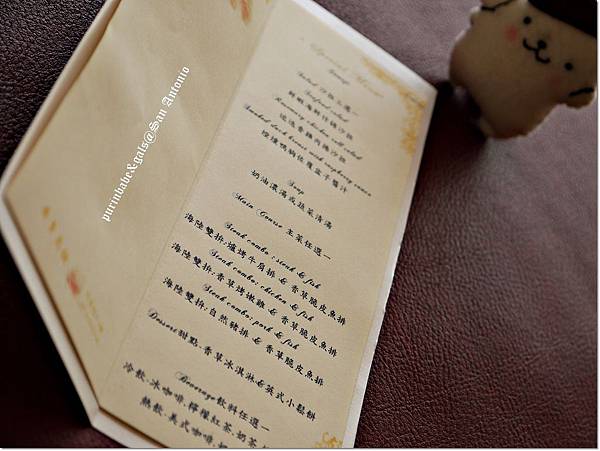 purinbabe&gals@San Antonio
Special Menu
Salad 沙拉二選一
Seafood salad
鮮蝦海鮮什錦沙拉
Rosemary chicken roll salad
迷迭香雞肉捲沙拉
Smoked duck breast with raspberry sauce
Soup
奶油濃湯或蔬菜清湯
Main Course 主菜任選一
Steak combo: steak & fish
海陸雙拚:爐烤牛肩排 & 香草脆皮魚排
Steak combo: chicken & fish
海陸雙拚:香草烤嫩雞 & 香草脆皮魚排
Steak combo: pork & fish
海陸雙拚:自然豬排 & 香草脆皮魚排
Dessert 甜點:香草冰淇淋&英式小鬆餅
Beverage 飲料任選一
冷飲:冰咖啡,檸檬紅茶,奶茶
熱飲:美式咖啡,奶